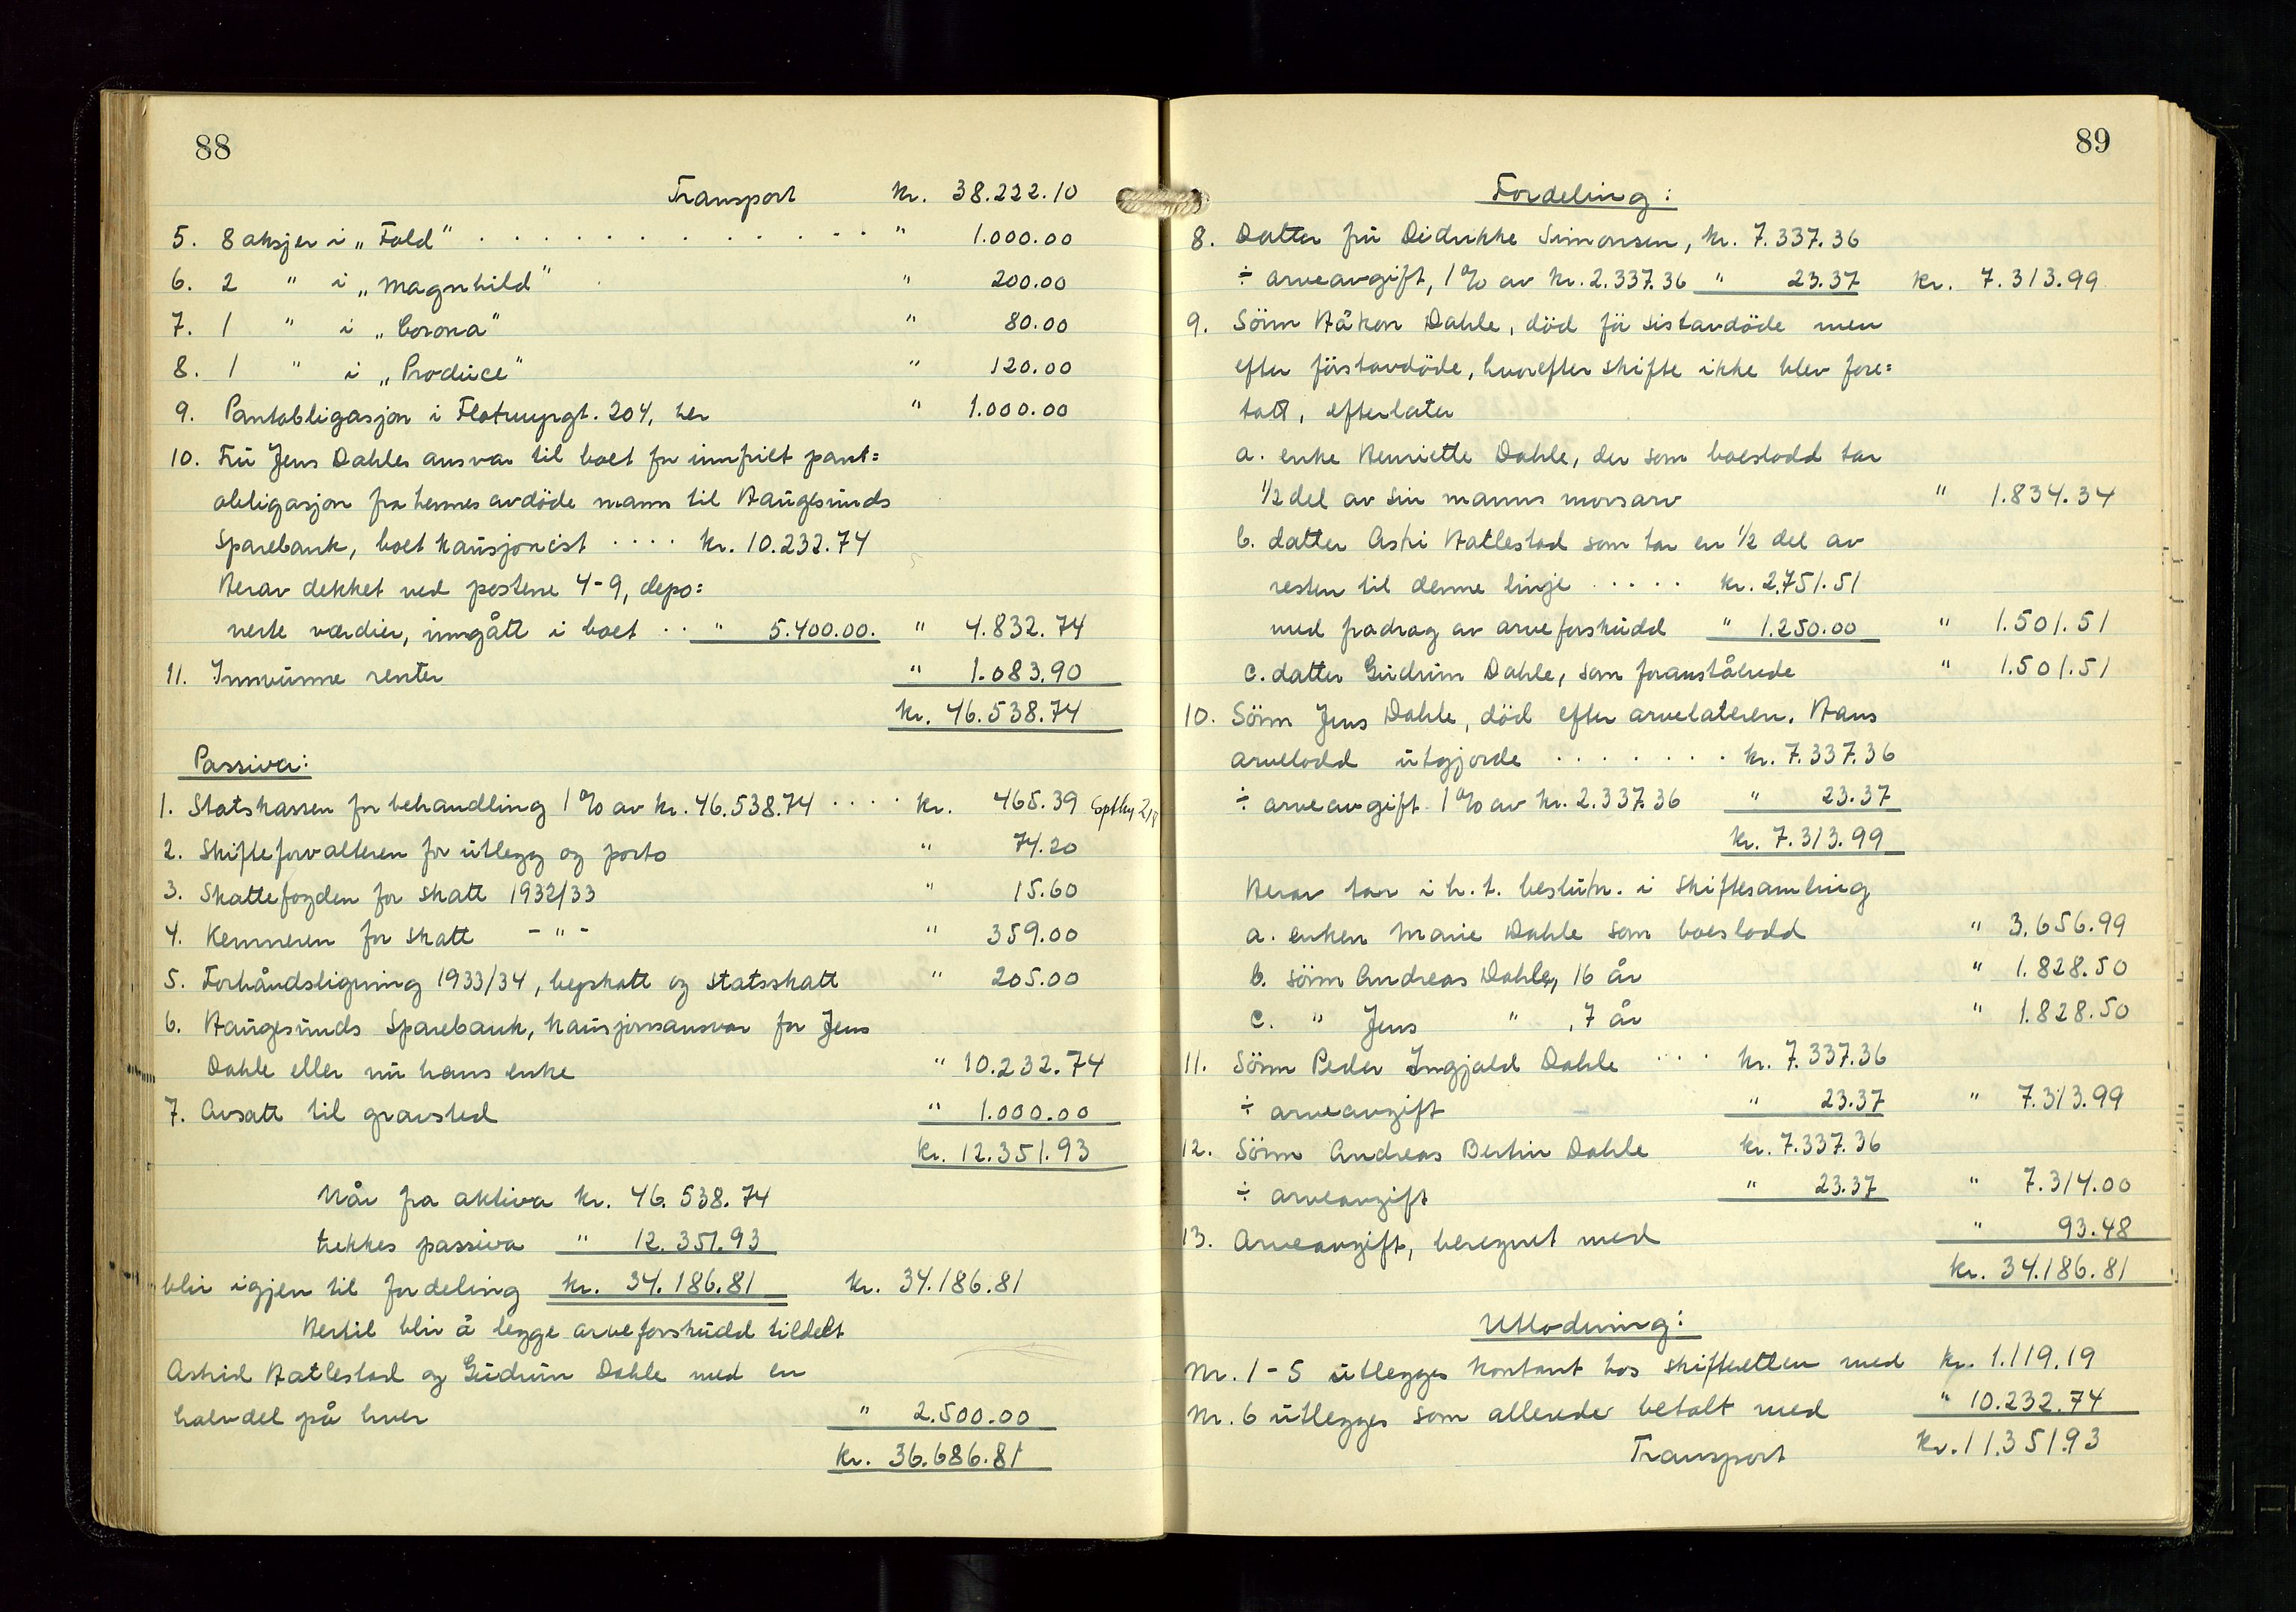 88
Transport kr. 38.222.10
5. 8 aksjer i „Fold" . . . . . . . . . . . . . . " 1.000.00
6. 2 " i „Magnhild" " 200.00
7. 1 " i „Corona" " 80.00
8. 1 " i „Produce" " 120.00
9. Pantobligasjon i Flotmyrgt. 204, her " 1.000.00
10. Fru Jens Dahles ansvar til boet for innfriet pant=
obligasjon fra hennes avdöde mann til Haugesunds
Sparebank, boet kausjonist . . . . kr. 10.232.74
Herav dekket ved postene 4-9, depo=
nerte værdier, inngått i boet . . " 5.400.00. " 4.832.74
11. Innvunne renter " 1.083.90
kr. 46.538.74
Passiva:
1. Statskassen for behandling 1% av kr. 46.538.74 . . . . kr. 465.39
2. Skifteforvalteren for utlegg og porto " 74.20
3. Skattefogden for skatt 1932/33 " 15.60
4. Kemneren for skatt - " - " 359.00
5. Forhåndsligning 1933/34, byskatt og statsskatt " 205.00
6. Haugesunds Sparebank, kausjonsansvar for Jens
Dahle eller nu hans enke " 10.232.74
7. Avsatt til gravsted " 1.000.00
kr. 12.351.93
Når fra aktiva kr. 46.538.74
trekkes passiva " 12.351.93
blir igjen til fordeling kr. 34.186.81 kr. 34.186.81
Hertil blir å legge arveforskudd tildelt
Astrid Hatlestad og Gudrun Dahle med en
halvdel på hver " 2.500.00
kr. 36.686.81
89
Fordeling:
8. Datter fru Didrikke Simonsen, kr. 7.337.36
÷ arveavgift, 1% av kr. 2.337.36 " 23.37 kr. 7.313.99
9. Sönn Håkon Dahle, död för sistavdöde men
efter förstavdöde, hvorefter skifte ikke blev fore=
tatt, efterlater
a. enke Henriette Dahle, der som boeslodd tar
1/2 del av sin manns morsarv " 1.834.34
b. datter Astri Hatlestad som tar en 1/2 del av
resten til denne linje . . . . . kr. 2.751.51
med fradrag av arveforskudd " 1.250.00 " 1.501.51
c. datter Gudrun Dahle, som foranstående " 1.501.51
10. Sönn Jens Dahle, död efter arvelateren. Hans
arvelodd utgjorde . . . . . . . kr. 7.337.36
÷ arveavgift 1% av kr. 2.337.36 " 23.37
kr. 7.313.99
Herav tar i h. t. beslutn. i skiftesamling
a. enken Marie Dahle som boeslodd " 3.656.99
b. sönn Andreas Dahle, 16 år " 1.828.50
c. " Jens " , 7 år " 1.828.50
11. Sönn Peder Ingjald Dahle . . . . kr. 7.337.36
÷ arveavgift " 23.37 " 7.313.99
12. Sönn Andreas Bertin Dahle kr. 7.337.36
÷ arveavgift " 23.37 " 7.314.00
13. Arveavgift, beregnet med " 93.48
kr. 34.186.81
Utlodning:
Nr. 1-5 utlegges kontant hos skifteretten med kr. 1.119.19
Nr. 6 utlegges som allerede betalt med " 10.232.74
Transport kr. 11.351.93